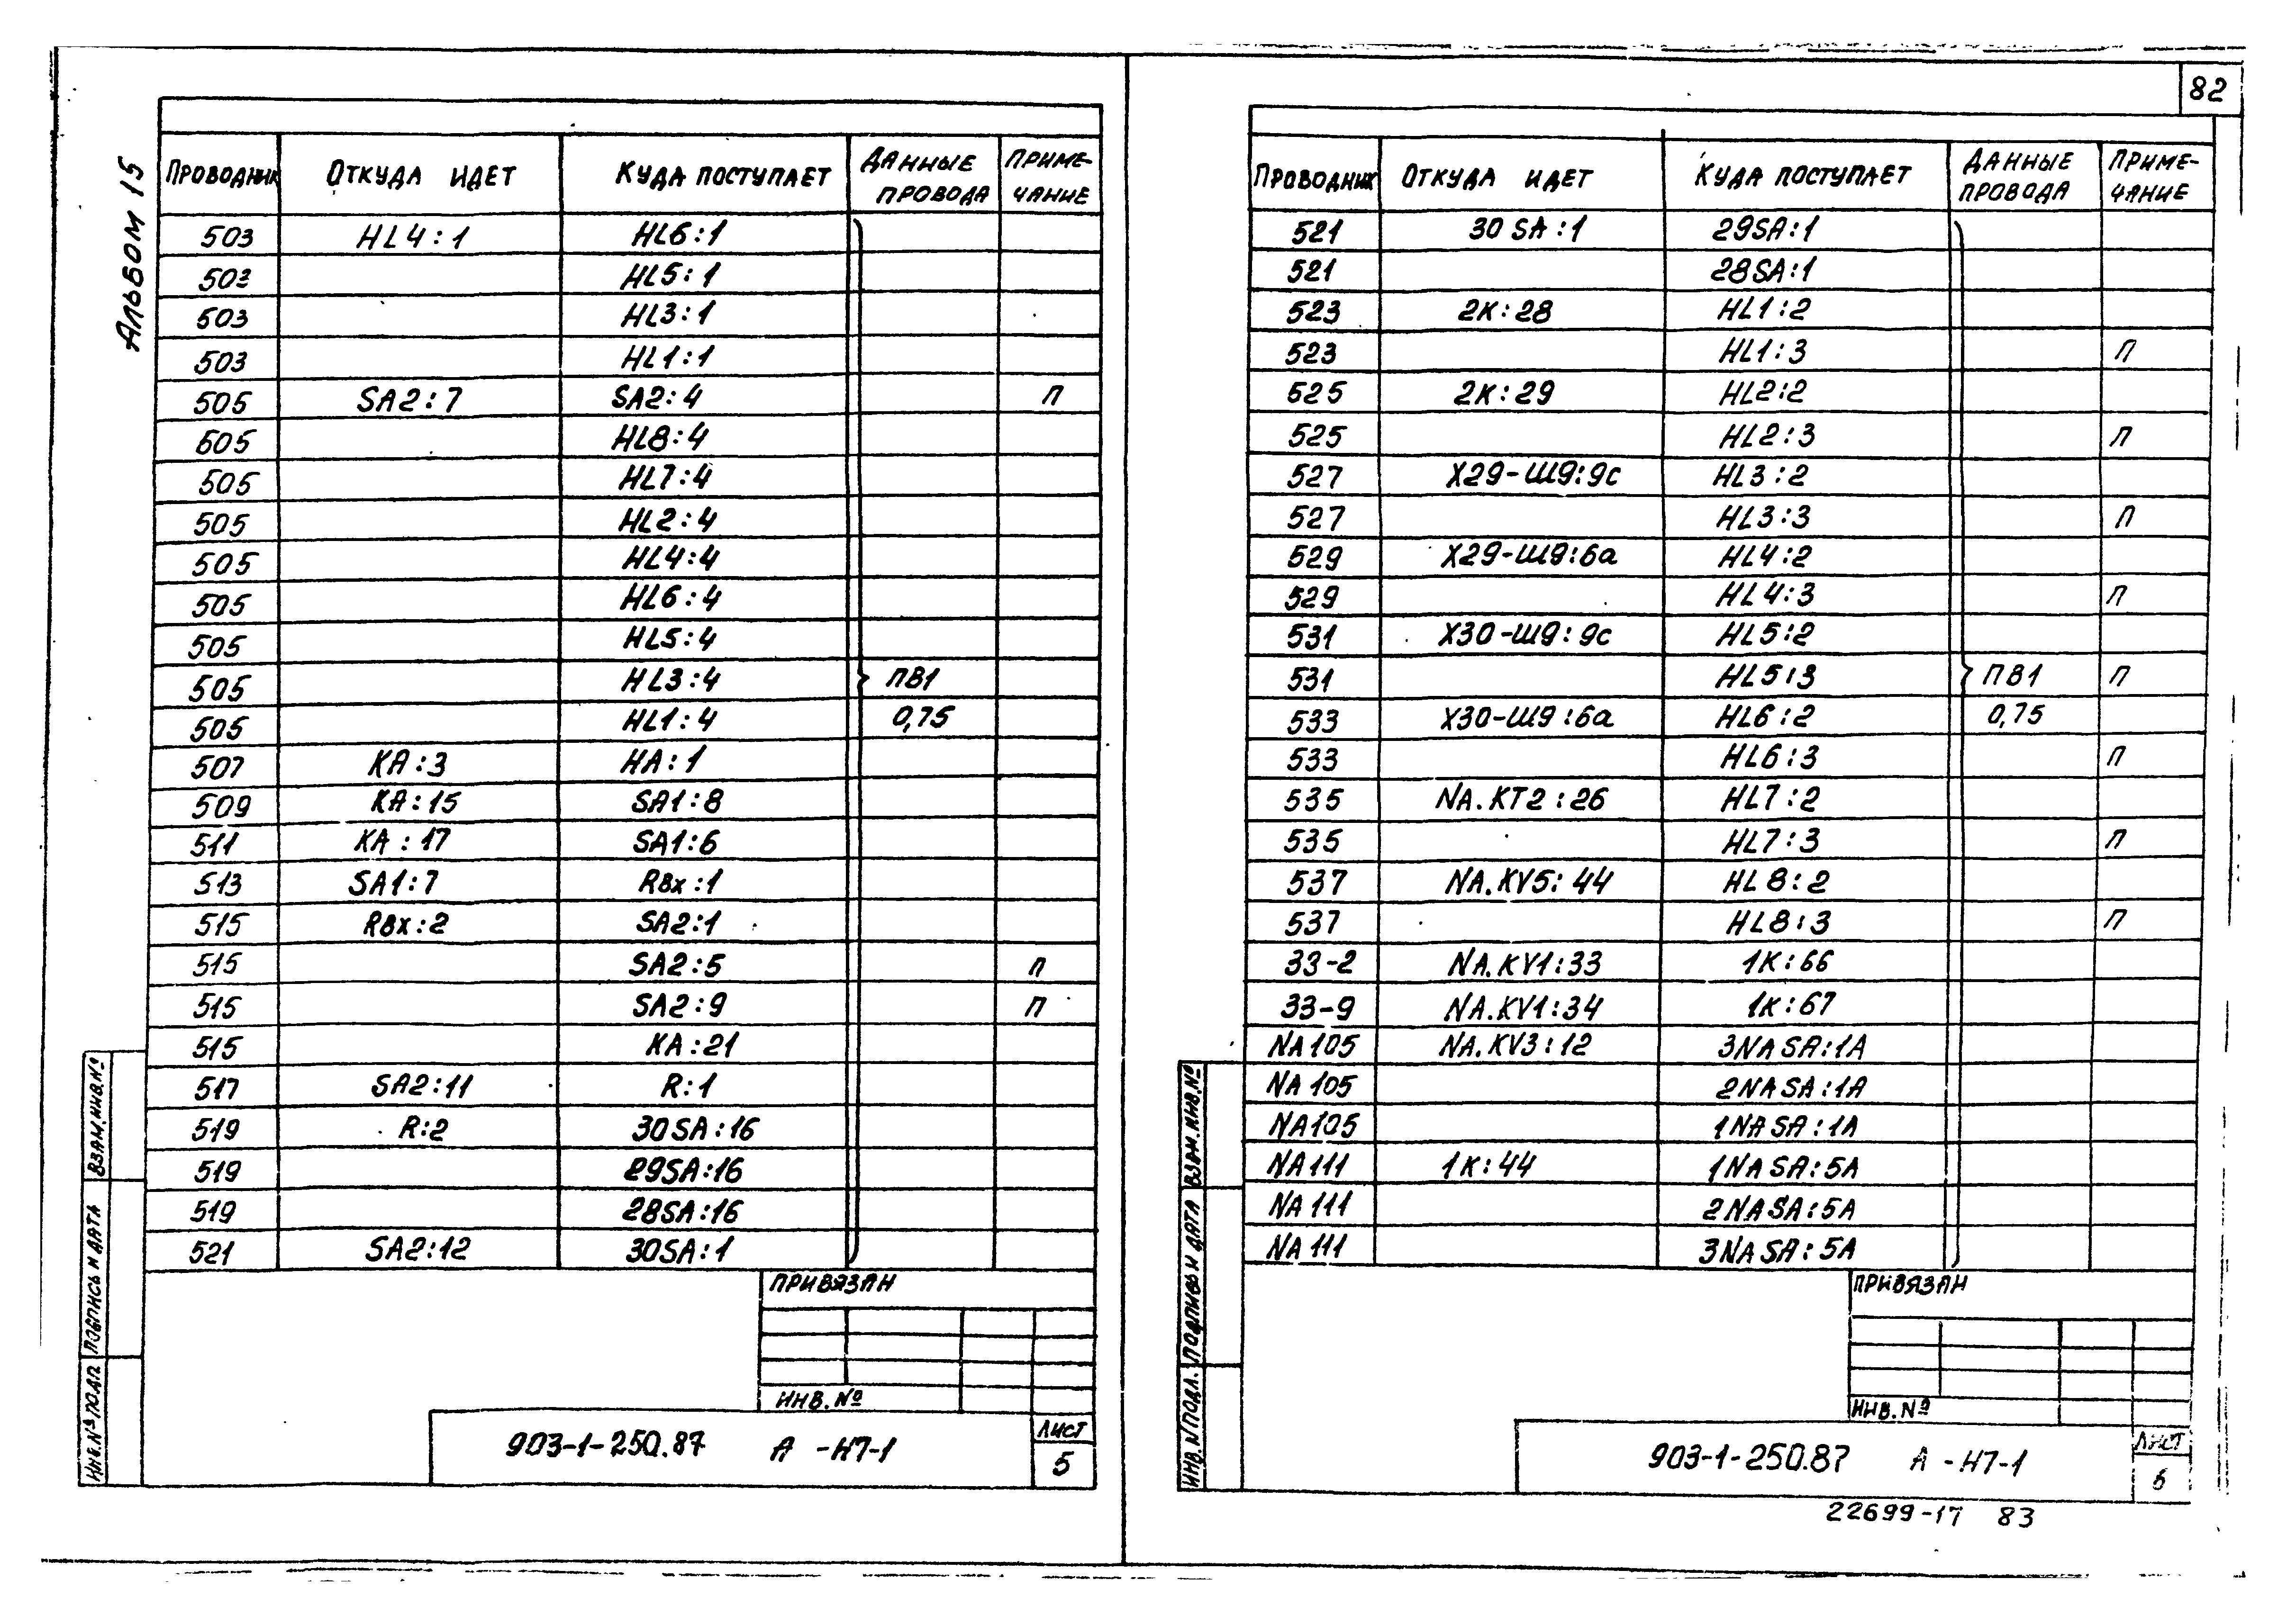 82
Альбом 15
Проводник Откуда идет Куда поступает Данные провода Примечание
503 HL4:1 HL6:1
503 HL5:1
503 HL3:1
503 HL1:1
505 SA2:7 SA2:4 П
505 HL8:4
505 HL7:4
505 HL2:4
505 HL4:4
505 HL6:4
505 HL5:4
505 HL3:4 ПВ1
505 HL1:4 0,75
507 КА:3 НА:1
509 КА:15 SA1:8
511 КА:17 SA1:6
513 SA1:7 Rвх:1
515 Rвх:2 SA2:1
515 SA2:5 П
515 SA2:9 П
515 КА:21
517 SA2:11 R:1
519 R:2 30SA:16
519 29SA:16
519 28SA:16
521 SA2:12 30SA:1
Привязан
Инв. №
903-1-250.87 А -Н7-1
Лист
5
Инв.№ подл Подпись и дата Взам.инв.№
Проводник Откуда идет Куда поступает Данные провода Примечание
521 30SA:1 29SA:1
521 28SA:1
523 2К:28 HL1:2
523 HL1:3 П
525 2К:29 HL2:2
525 HL2:3 П
527 Х29-Ш9:9с HL3:2
527 HL3:3 П
529 Х29-Ш9:6а HL4:2
529 HL4:3 П
531 Х30-Ш9:9с HL5:2
531 HL5:3 ПВ1 П
533 Х30-Ш9:6а HL6:2 0,75
533 HL6:3 П
535 NA.KT2:26 HL7:2
535 HL7:3 П
537 NA.KV5:44 HL8:2
537 HL8:3 П
33-2 NA.KV1:33 1К:66
33-9 NA.KV1:34 1К:67
NA105 NA.KV3:12 3NASA:1A
NA105 2NASA:1A
NA105 1NASA:1A
NA111 1К:44 1NASA:5A
NA111 2NASA:5A
NA111 3NASA:5A
Привязан
Инв. №
903-1-250.87 А -Н7-1
Лист
6
Инв. № подл. Подпись и дата Взам.инв.№
22699-17 83